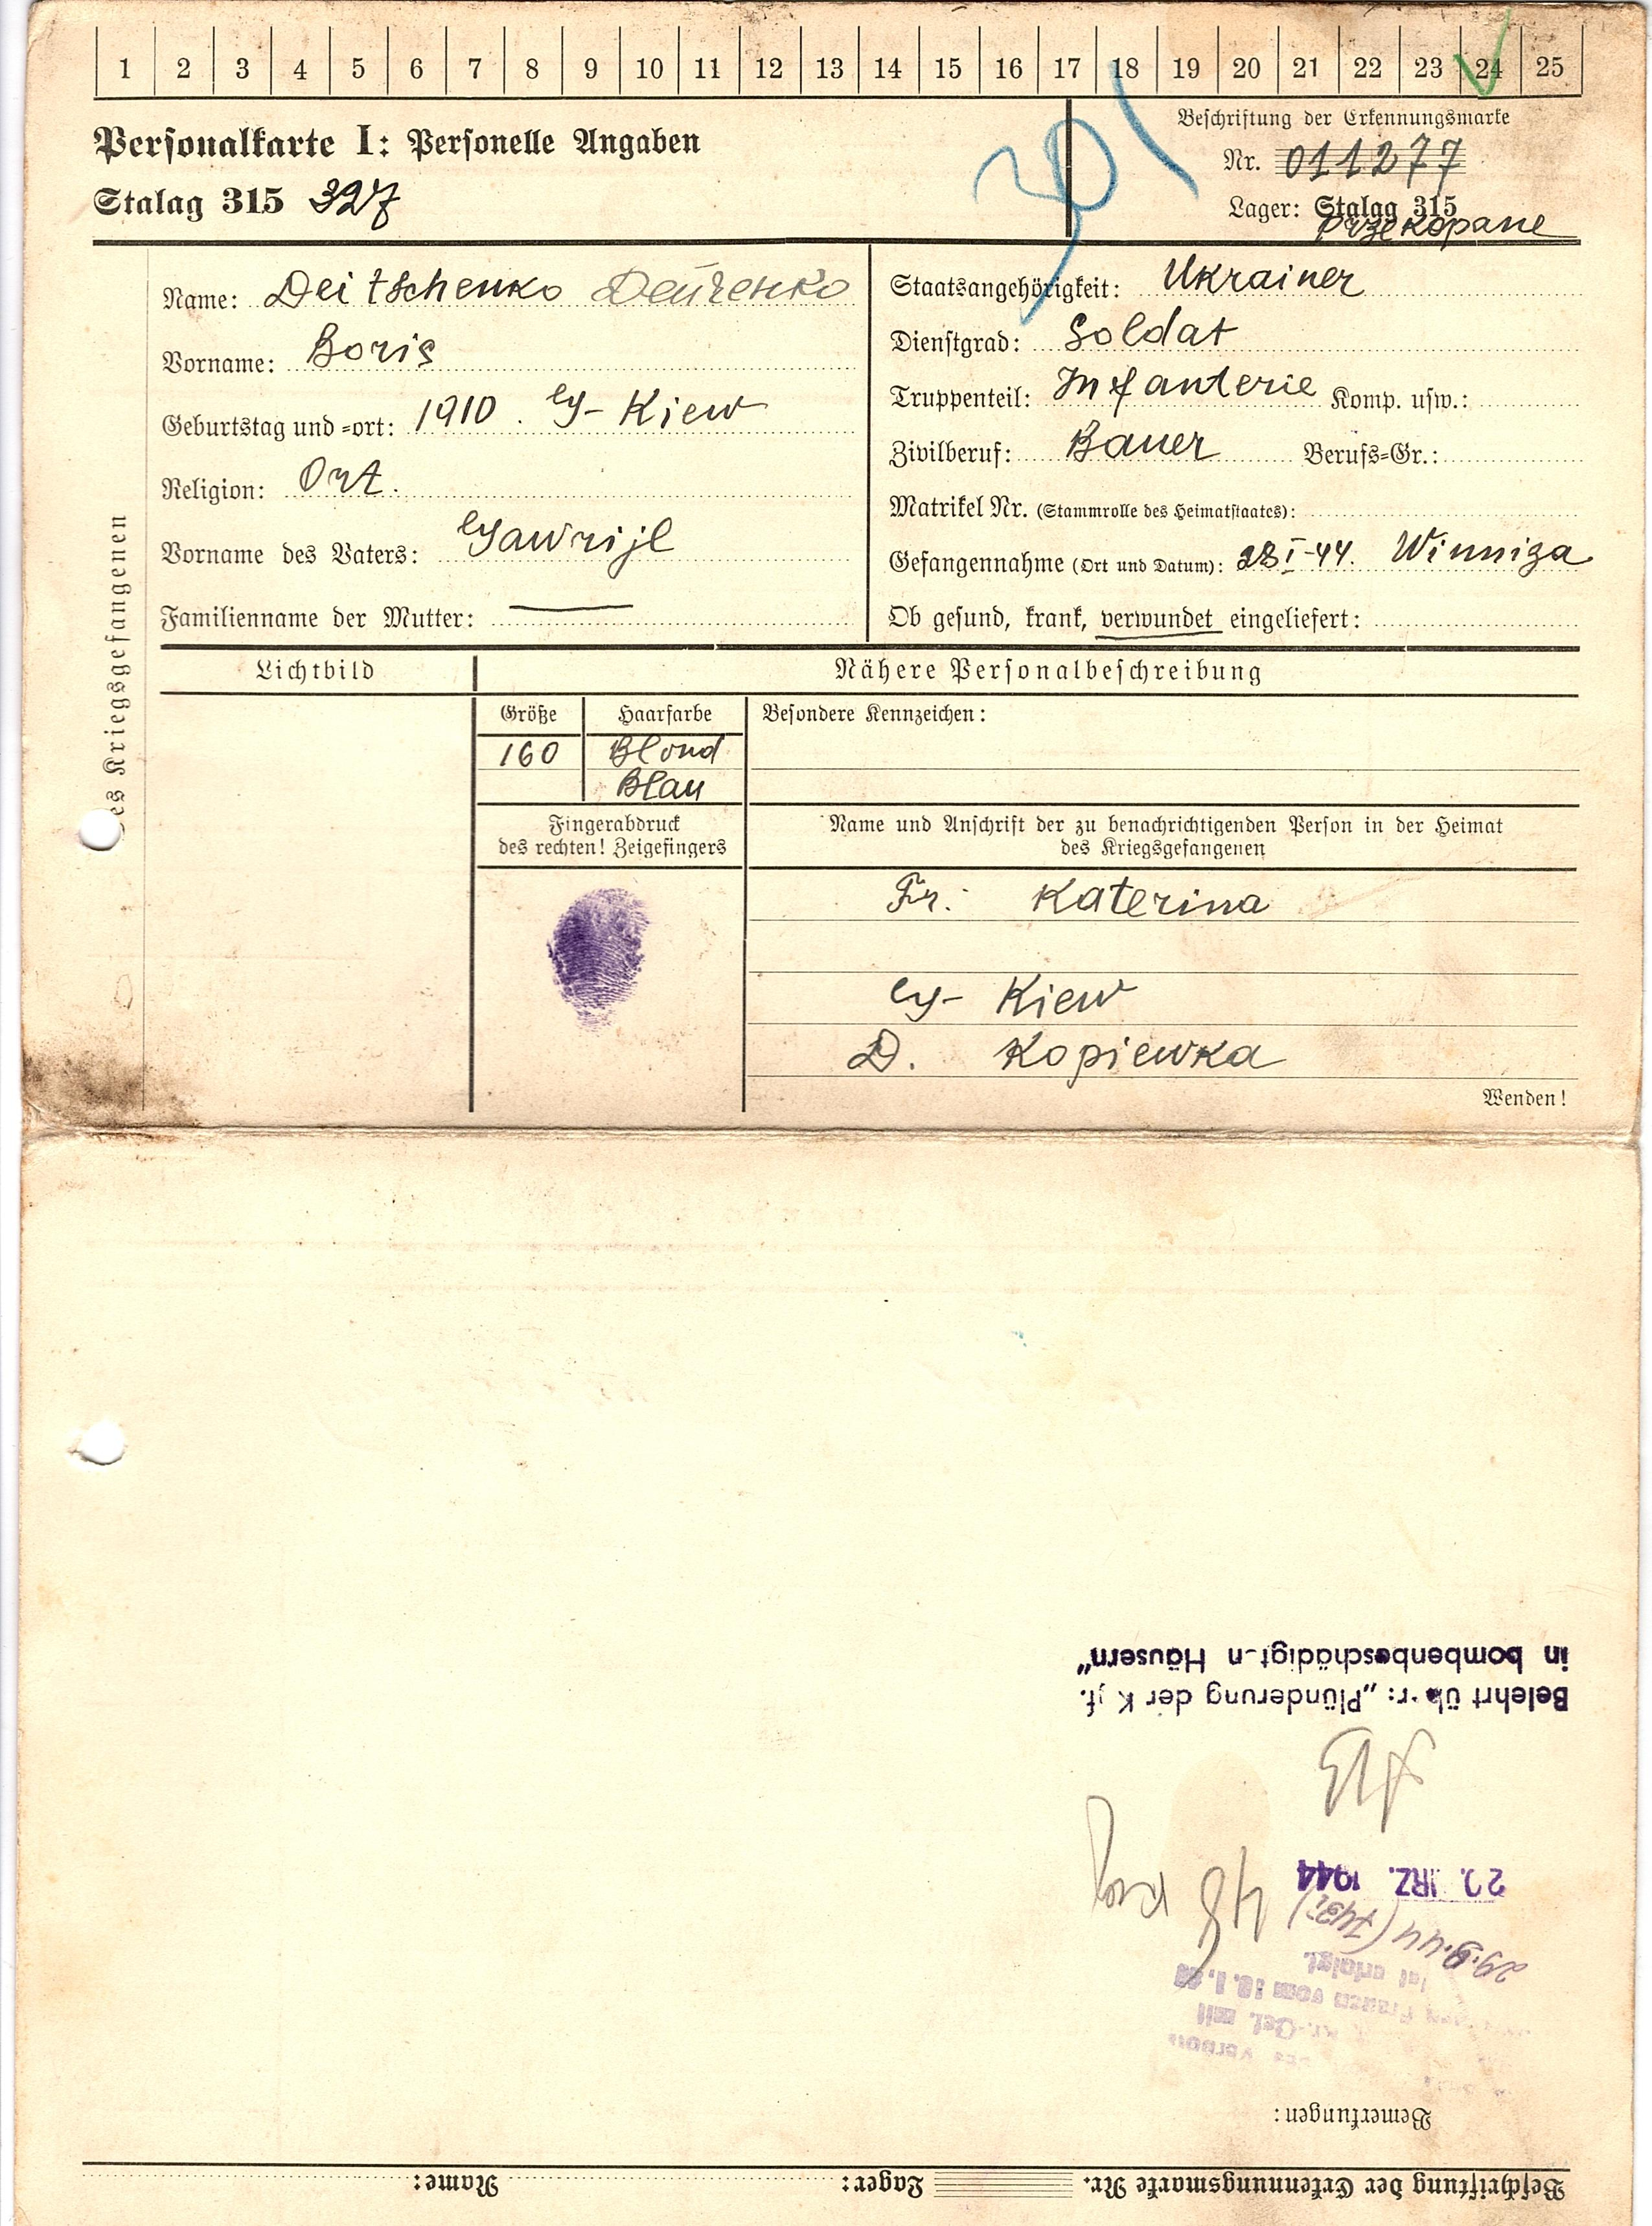 1 2 3 4 5 6 7 8 9 10 11 12 13 14 15 16 17 18 19 20 21 22 23 24 25
Personalkarte I: Personelle Angaben
Stalag 315 327
Beschriftung der Erkennungsmarke
Nr. 011277
Lager: Stalag 315
Przekopane
Name: Deitschenko
Vorname: Boris
Geburtstag und -ort: 1910. G- Kiew
Religion: Ort.
Vorname des Vaters: Gawrijl
Familienname der Mutter:
Staatsangehörigkeit: Ukrainer
Dienstgrad: Soldat
Truppenteil: Infanterie Komp. usw.:
Zivilberuf: Bauer Berufs-Gr.:
Matrikel Nr. (Stammrolle des Heimatstaates):
Gefangennahme (Ort und Datum): 28 I-44. Winniza
Ob gesund, krank, verwundet eingeliefert:
des Kriegsgefangenen
Lichtbild
Nähere Personalbeschreibung
Größe Haarfarbe
160 Blond
Blau
Besondere Kennzeichen:
Fingerabdruck
des rechten! Zeigefingers
Name und Anschrift der zu benachrichtigenden Person in der Heimat
des Kriegsgefangenen
Fr: Katerina
G- Kiew
D. Kopiewka
Wenden!
Beschriftung der Erkennungsmarke Nr. Lager: Name:
Bemerkungen:
Kr.-Gef. mit
Frauen vom
ist erfolgt.
29.9.44
RZ. 1944
Belehrt über: „Plünderung der
in bombenbeschädigten Häusern"